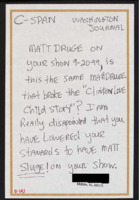 C-SPAN WASHINGTON
JOURNAL
MATT DRUGE ON
your show 9-30-99, is
this the same MATT DRUGE
that broke the "Clinton Love
Child Story"? I am
Really disappointed that you
have Lowered your
standards to have Matt
Sludge! on your show.